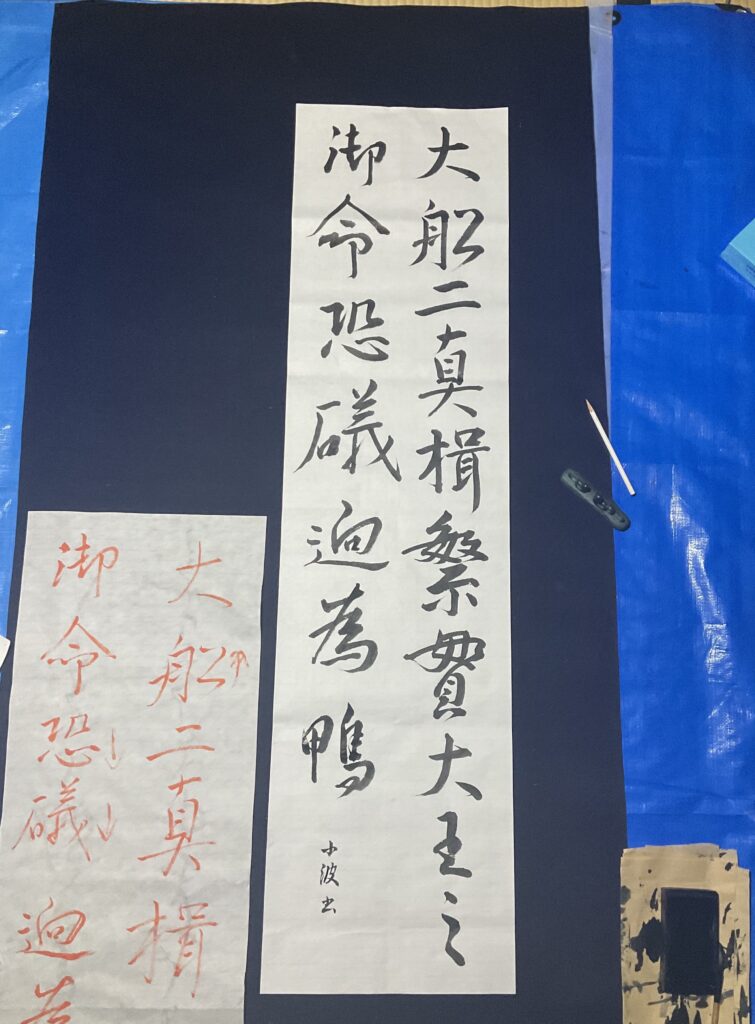 大船二真楫繁貫大王之
御命恐礒迴為鴨
小波書
大船二真楫
御命恐礒迴為